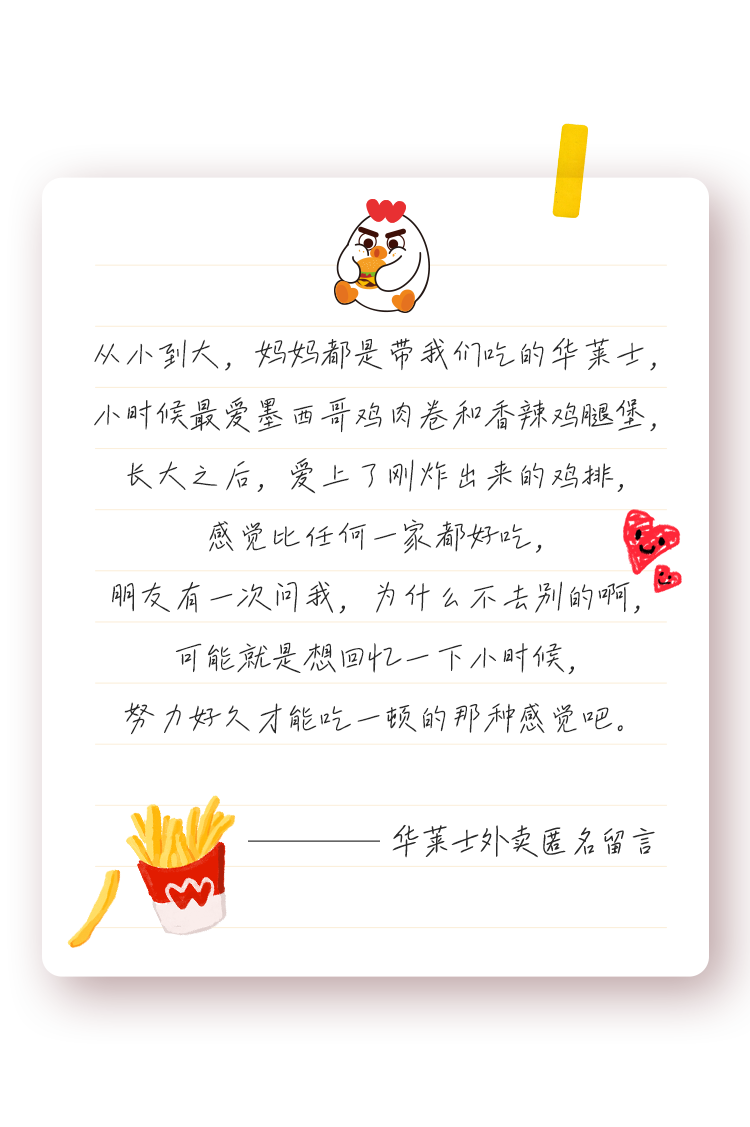 从小到大，妈妈都是带我们吃的华莱士，
小时候最爱墨西哥鸡肉卷和香辣鸡腿堡，
长大之后，爱上了刚炸出来的鸡排，
感觉比任何一家都好吃，
朋友有一次问我，为什么不去别的啊，
可能就是想回忆一下小时候，
努力好久才能吃一顿的那种感觉吧。
————华莱士外卖匿名留言